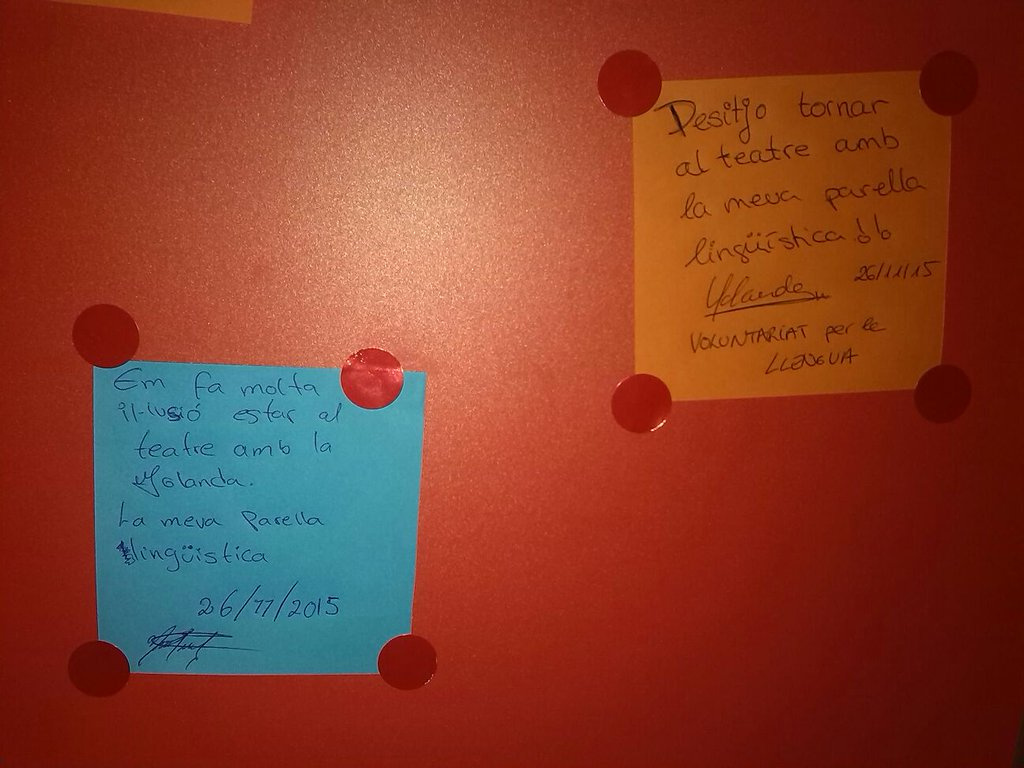 Desitjo tornar
al teatre amb
la meva parella
lingüística
Yolanda 26/11/15
VOLUNTARIAT per la
LLENGUA
Em fa molta
il·lusió estar al
teatre amb la
Yolanda.
La meva parella
lingüistica
26/11/2015